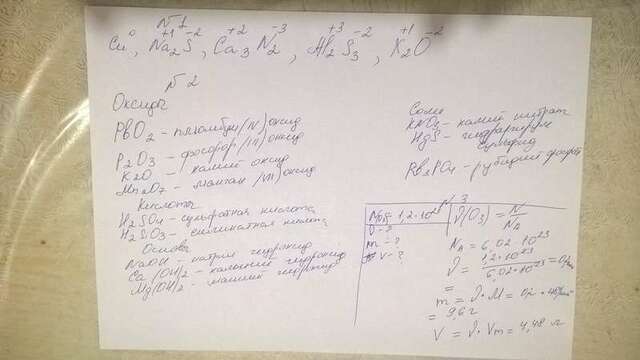 N 1
Cu⁰, Na₂⁺¹S⁻², Ca₃⁺²N₂⁻³, Al₂⁺³S₃⁻², K₂⁺¹O⁻²
N 2
Оксиды
PbO₂ - плюмбум (IV) оксид
P₂O₃ - фосфор (III) оксид
K2O - калий оксид
Mn₂O₇ - манган (VII) оксид
Кислоты
H₂SO₄ - сульфатная кислота
H₂SO₃ - кислота
Основы
NaOH - натрий гидроксид
Ca(OH)₂ - кальций гидроксид
Mg(OH)₂ - магний гидроксид
Соли
KNO₃ - калий нитрат
HgS - гидраргирум
сульфид
PO₄ - рубидий фосфат
N 3
1,2·10²³
ν = ?
m = ?
V = ?
ν(O₃) = N/Nₐ
Nₐ = 6,02·10²³
ν = 1,2·10²³/6,02·10²³ =
=
m = ν·M = 0,2·48
= 9,6 г
V = ν·Vm = 4,48 л